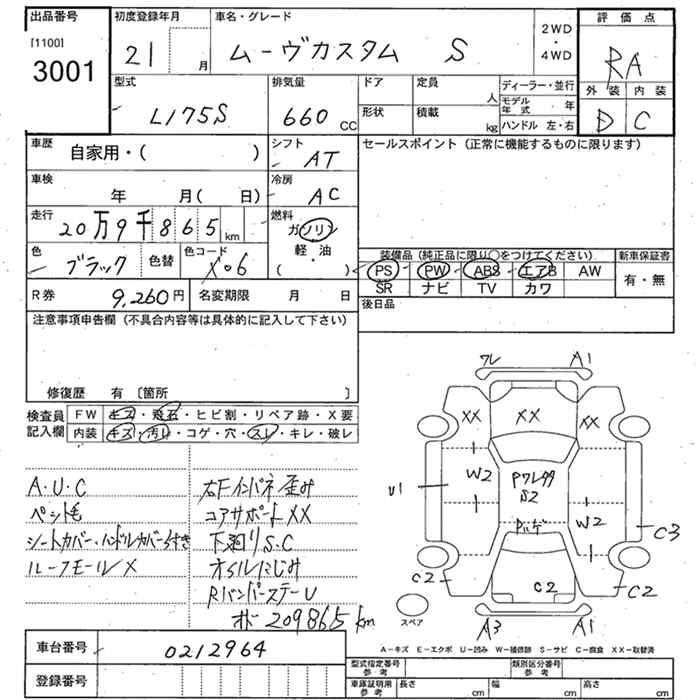 出品番号
[1100]
3001
初度登録年月
21 月
車名・グレード
ムーヴカスタム S
2WD
・
4WD
評価点
RA
外装 内装
D C
型式
L175S
排気量
660 CC
ドア
形状
定員 人
積載 kg
ディーラー・並行
モデル年式 年
ハンドル 左・右
車歴
自家用・( )
シフト
AT
セールスポイント (正常に機能するものに限ります)
車検
年 月( 日)
冷房
AC
走行
20万9千865km
燃料
ガソリン
軽・油
( )
色
ブラック 色替
色コード
X・6
装備品 (純正品に限り○をつけてください)
新車保証書
PS PW ABS エアB AW
SR ナビ TV カワ
有・無
R券 9,260円
名変期限 月 日
後日品
注意事項申告欄 (不具合内容等は具体的に記入して下さい)
修復歴 有〔箇所 〕
検査員
記入欄
FW キズ・飛石・ヒビ割・リペア跡・X要
内装 キズ・汚れ・コゲ・穴・スレ・キレ・破レ
A・U・C
ペット毛
シートカバー・ハンドルカバー付き
ルーフモールX
右Fインパネ歪み
コアサポートXX
下廻りS.C
オイルにじみ
RバンパーステーU
オド 209865km
ワレ A1
XX XX XX
U1 W2
Pワレ99
S2
W2
Pハゲ
C3
C2 C2 C2
A3 A1
スペア
A-キズ E-エクボ U-凹み W-補修跡 S-サビ C-腐食 XX-取替済
車台番号 0212964
登録番号
型式指定番号
参考
類別区分番号
参考
車庫証明用
参考
長さ cm 幅 cm 高さ cm